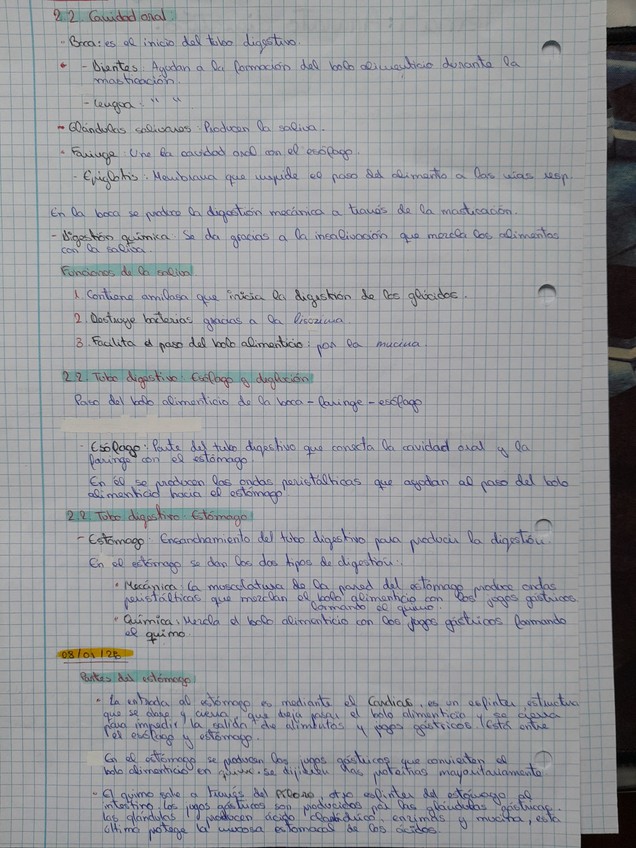 2.2. Cavidad oral
- Boca: es el inicio del tubo digestivo.
- Dientes: Ayudan a la formación del bolo alimenticio durante la
masticación.
- Lengua: " "
- Glándulas salivares: Producen la saliva.
- Faringe: Une la cavidad oral con el esófago.
- Epiglotis: Membrana que impide el paso del alimento a las vías resp.
En la boca se produce la digestión mecánica a través de la masticación.
- Digestión química: Se da gracias a la insalivación que mezcla los alimentos
con la saliva.
Funciones de la saliva
1. Contiene amilasa que inicia la digestión de los glúcidos.
2. Destruye bacterias gracias a la lisozima
3. Facilita el paso del bolo alimenticio: por la mucina
2.2. Tubo digestivo: Esófago y deglución
Paso del bolo alimenticio de la boca - faringe - esófago
- Esófago: Parte del tubo digestivo que conecta la cavidad oral y la
faringe con el estómago
En él se producen las ondas peristálticas que ayudan al paso del bolo
alimenticio hacia el estómago.
2.2 Tubo digestivo: Estómago
- Estómago: Ensanchamiento del tubo digestivo para producir la digestión
En el estómago se dan los dos tipos de digestión:
• Mecánica: La musculatura de la pared del estómago produce ondas
peristálticas que mezclan el bolo alimenticio con los jugos gástricos
formando el quimo
• Química: Mezcla el bolo alimenticio con los jugos gástricos formando
el quimo
08/01/26
Partes del estómago
• La entrada al estómago es mediante el Cardias, es un esfínter estructura
que se abre y cierra, que deja pasar el bolo alimenticio y se cierra
para impedir la salida de alimentos y jugos gástricos. Está entre
el esófago y estómago.
En el estómago se producen los jugos gástricos que convierten el
bolo alimenticio en quimo. Se digieren las proteínas mayoritariamente
- El quimo sale a través del Píloro, otro esfínter del estómago al
intestino, los jugos gástricos son producidos por las glándulas gástricas.
las glándulas producen ácido clorhídrico, enzimas y mucina, esta
última protege la mucosa estomacal de los ácidos.